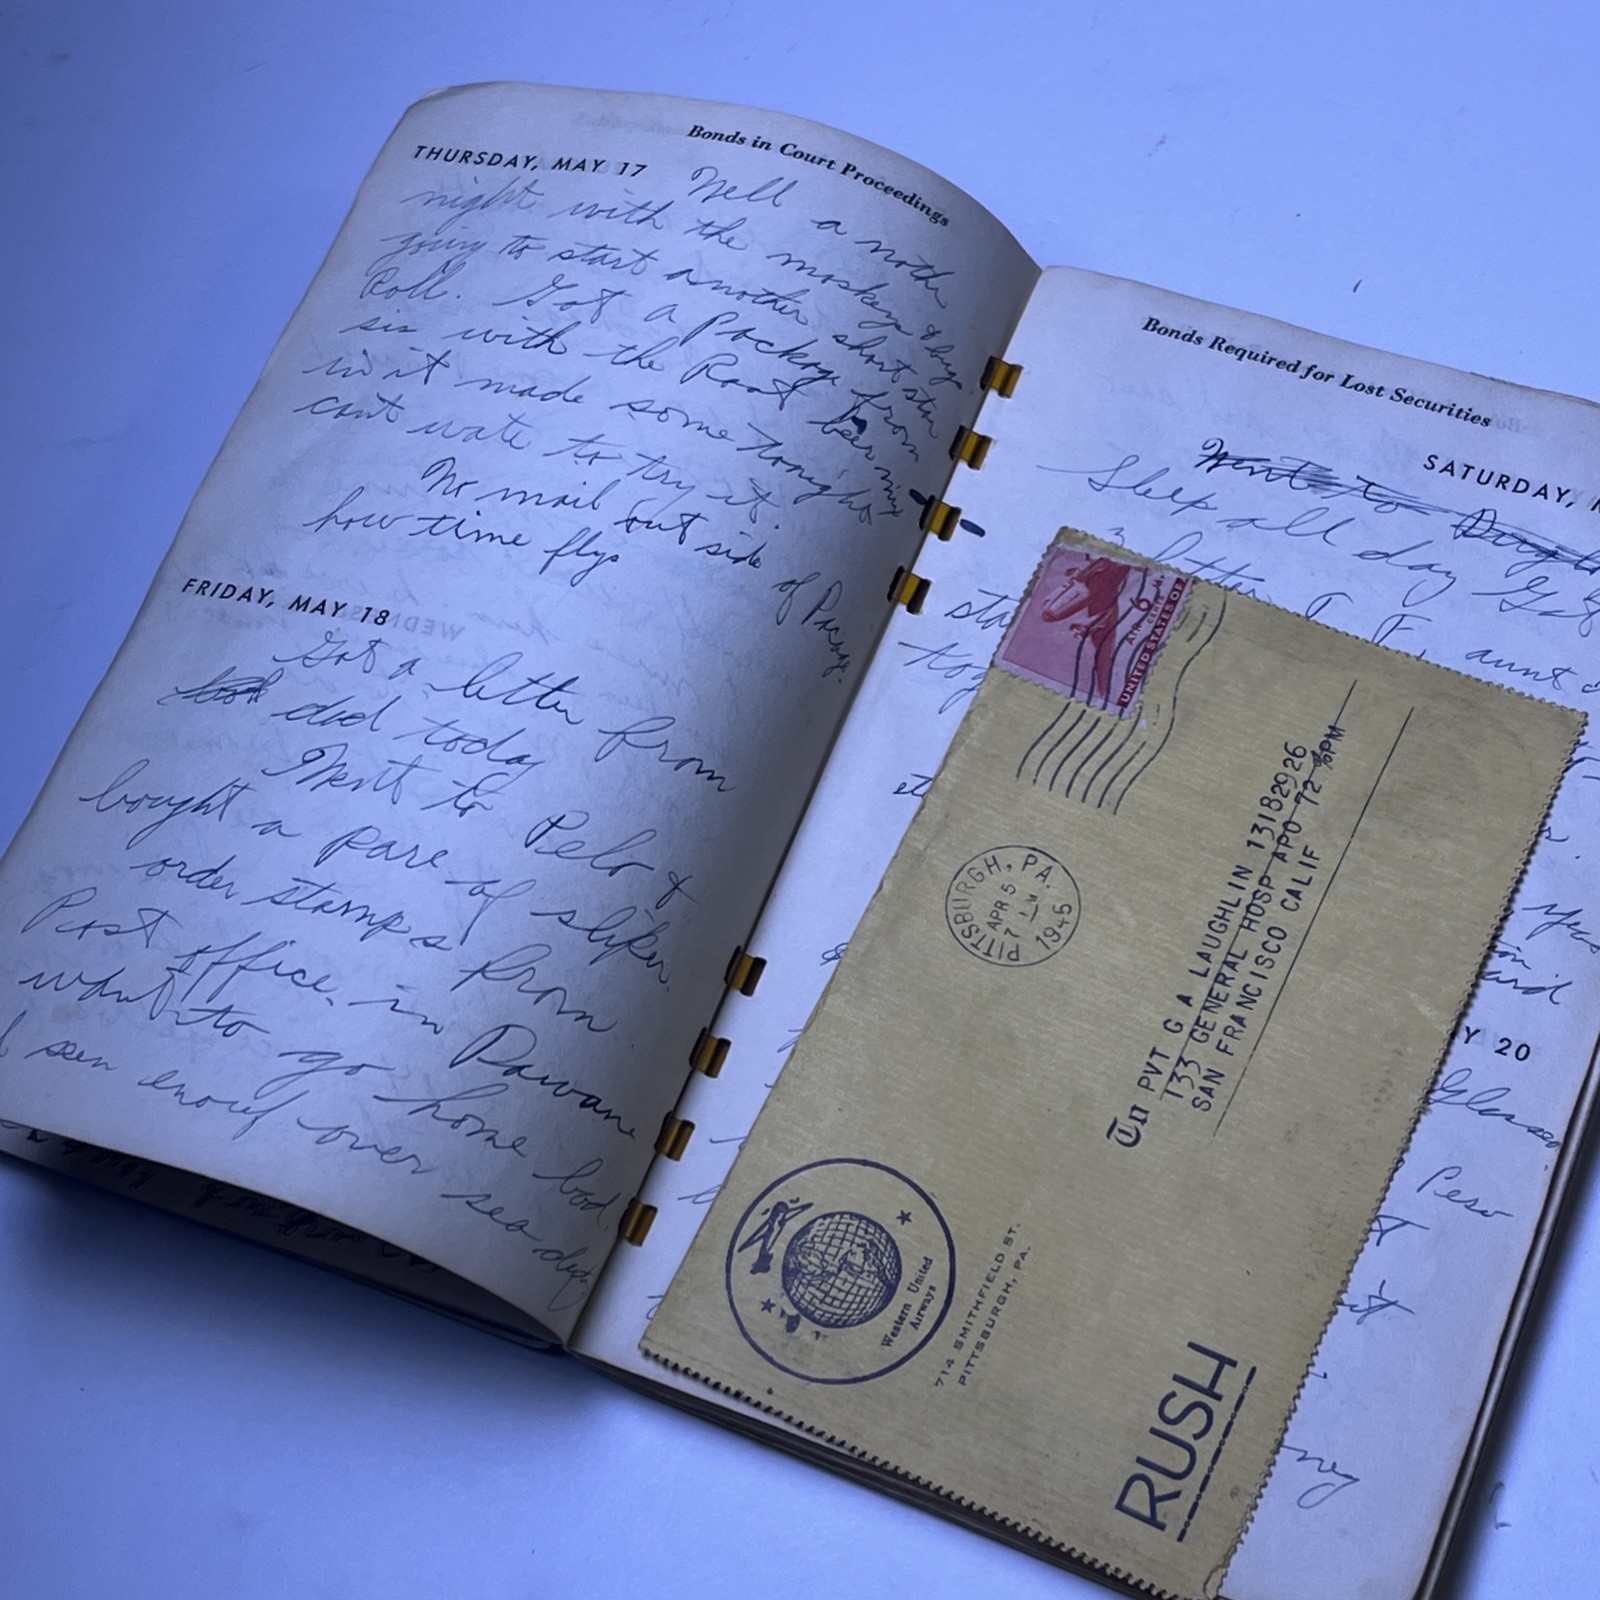 Bonds in Court Proceedings
THURSDAY, MAY 17
Well a noth
night with the moskeys & bugs
going to start another short star
Roll. Got a Package from
sis with the Root beer
in it made some tonight
cant wate to try it.
No mail out side of Package.
how time flys
FRIDAY, MAY 18
Got a letter from
dad today
Went to Pelo &
bought a pare of sliper.
order stamps from
Post office. in Pawane
want to go home bad.
I seen enouf over sea
Bonds Required for Lost Securities
SATURDAY,
Went to
Sleep all day Got
letter aunt
tog
Y 20
Glasses
Peso
UNITED STATES OF
AIR
6¢
PITTSBURGH, PA.
APR 5
7
1945
To PVT G A LAUGHLIN 13182926
133 GENERAL HOSP APO 72 %PM
SAN FRANCISCO CALIF
Western United
Airways
714 SMITHFIELD ST.
PITTSBURGH, PA.
RUSH